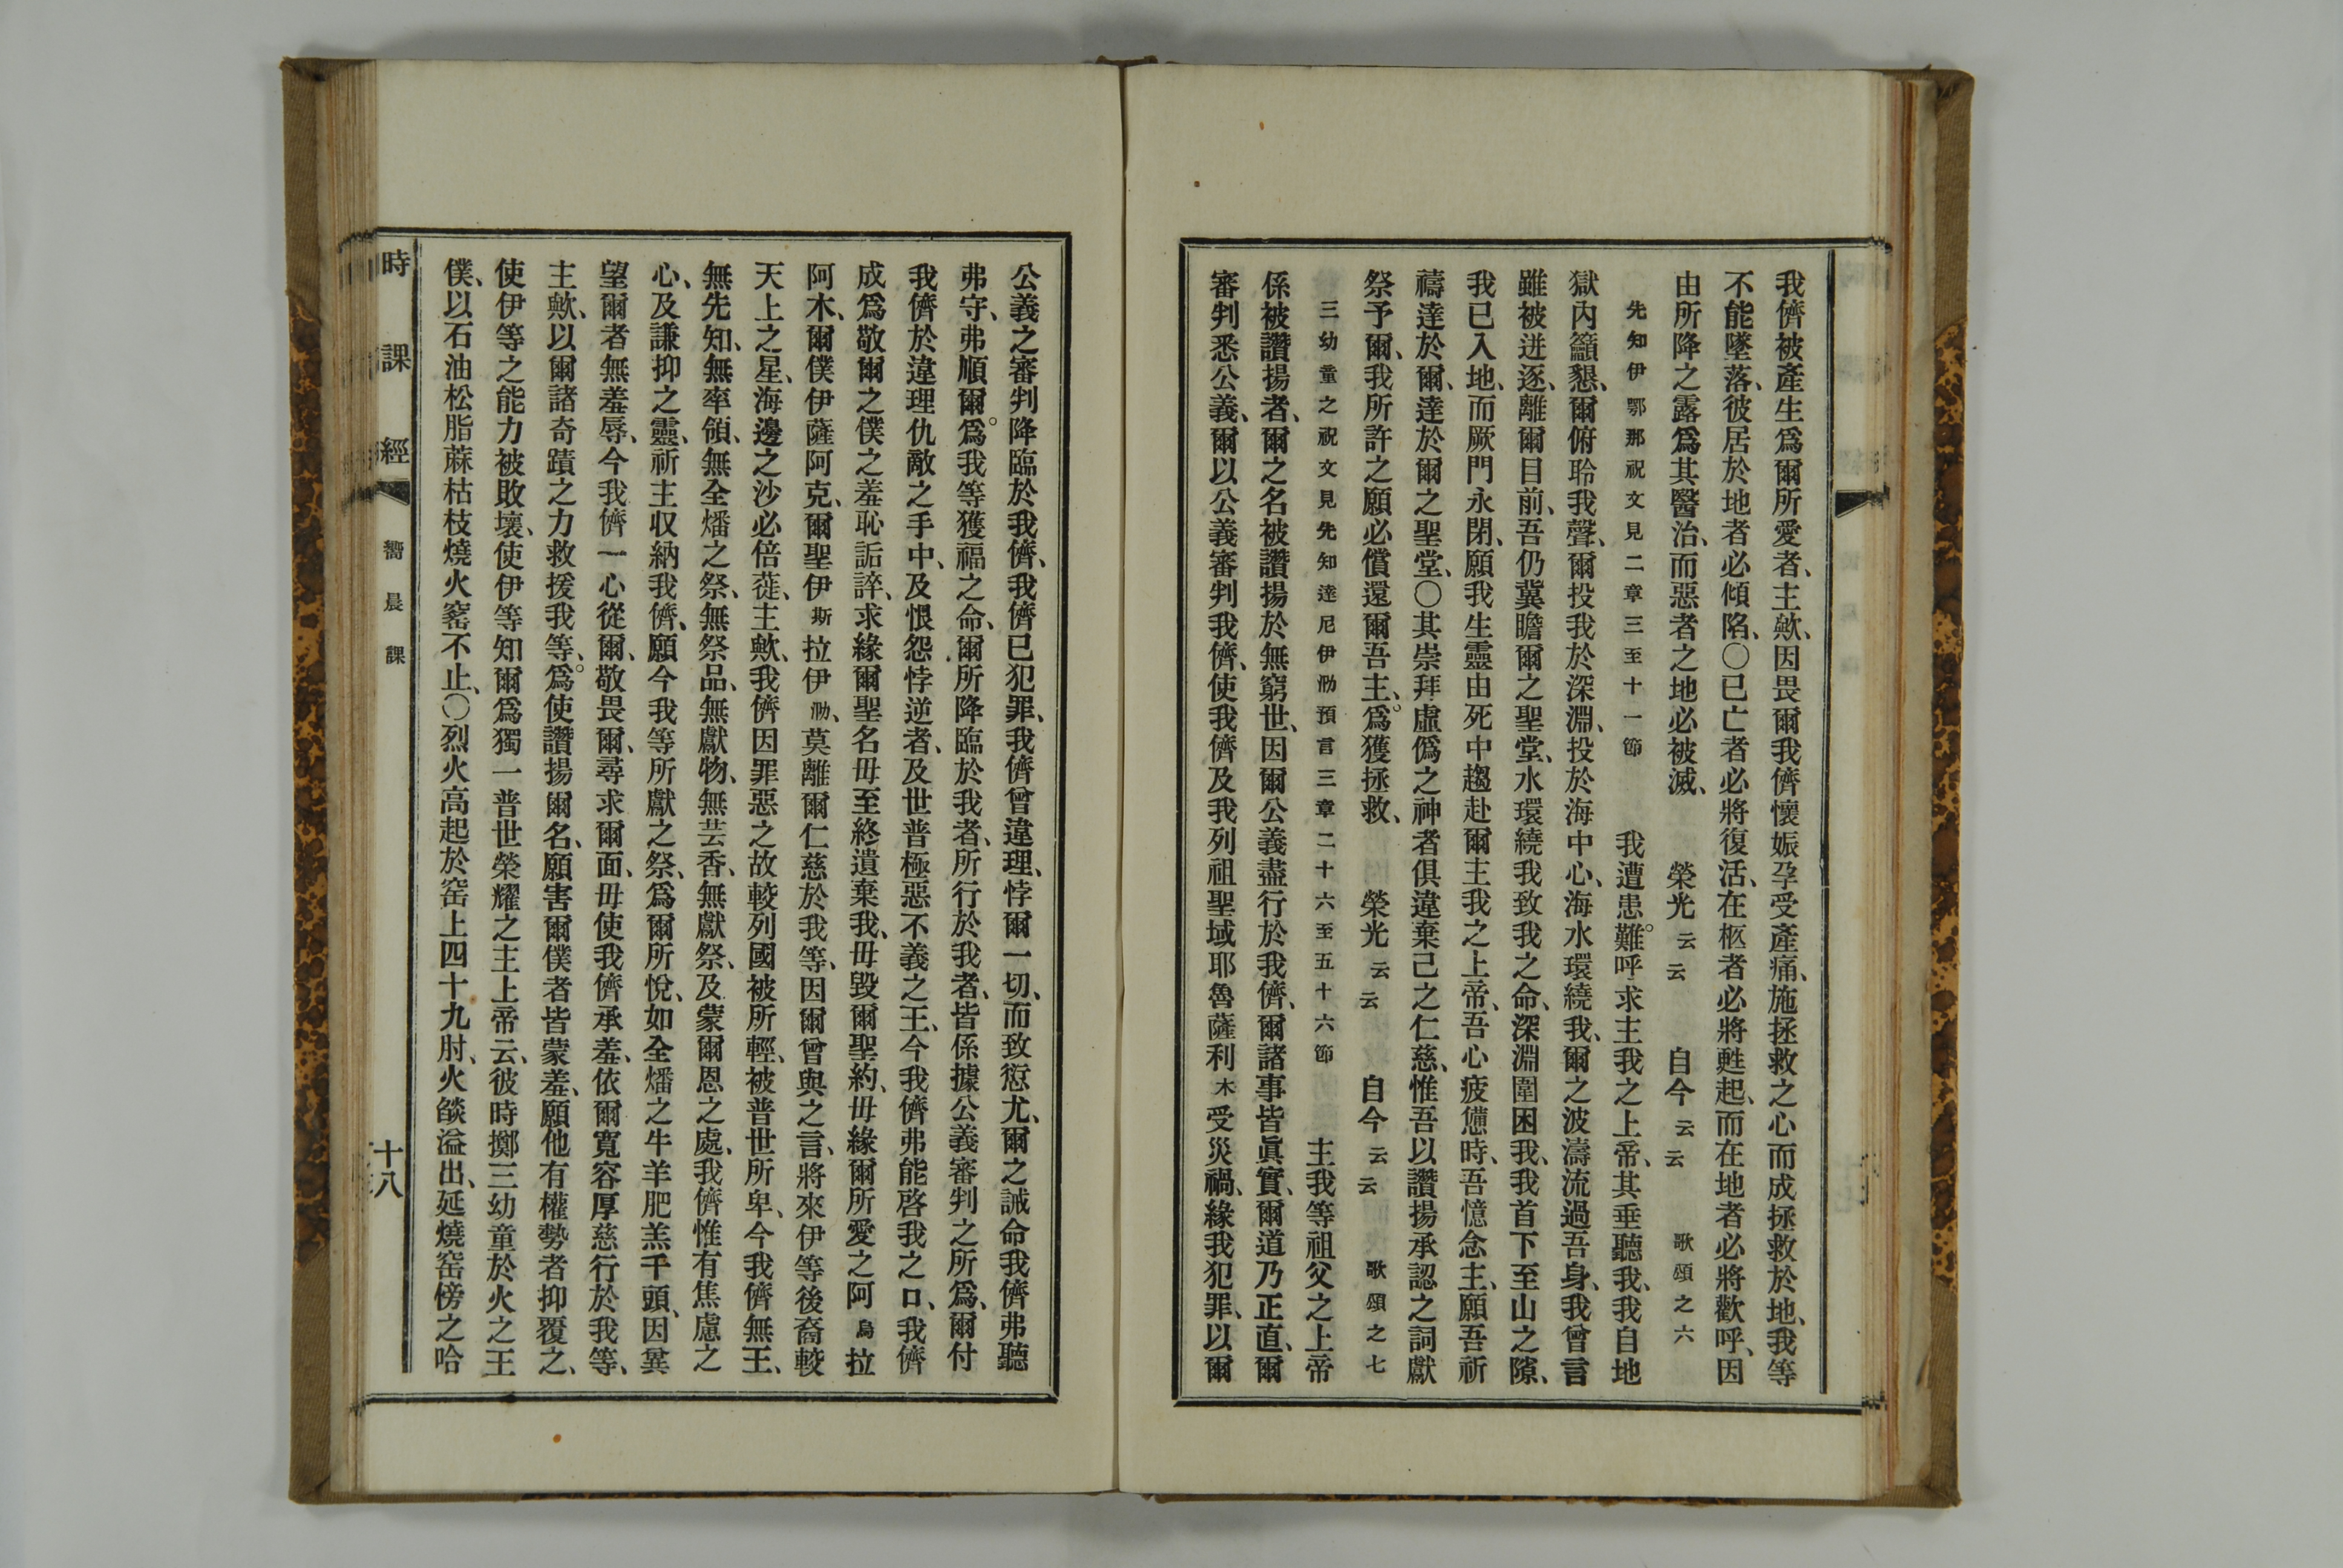 我儕被產生爲爾所愛者、主歟、因畏爾我儕懷娠孕受產痛、施拯救之心而成拯救於地、我等
不能墜落、彼居於地者必傾陷、〇已亡者必將復活、在柩者必將甦起、而在地者必將歡呼、因
由所降之露爲其醫治、而惡者之地必被滅、 榮光云云 自今云云 歌頌之六
先知伊鄂那祝文見二章三至十一節 我遭患難。呼求主我之上帝、其垂聽我、我自地
獄內籲懇、爾俯聆我聲、爾投我於深淵、投於海中心、海水環繞我、爾之波濤流過吾身、我曾言
雖被迸逐、離爾目前、吾仍冀瞻爾之聖堂、水環繞我致我之命、深淵圍困我、我首下至山之隙、
我已入地、而厥門永閉、願我生靈由死中趨赴爾主我之上帝、吾心疲憊時、吾憶念主、願吾祈
禱達於爾、達於爾之聖堂、〇其崇拜虛僞之神者俱違棄己之仁慈、惟吾以讚揚承認之詞獻
祭予爾、我所許之願必償還爾吾主。爲獲拯救、 榮光云云 自今云云 歌頌之七
三幼童之祝文見先知達尼伊勈預言三章二十六至五十六節 主我等祖父之上帝
係被讚揚者、爾之名被讚揚於無窮世、因爾公義盡行於我儕、爾諸事皆眞實、爾道乃正直、爾
審判悉公義、爾以公義審判我儕、使我儕及我列祖聖域耶魯薩利木受災禍、緣我犯罪、以爾
公義之審判降臨於我儕、我儕已犯罪、我儕曾違理、悖爾一切、而致愆尤、爾之誡命我儕弗聽
弗守、弗順爾。爲我等獲福之命、爾所降臨於我者、所行於我者、皆係據公義審判之所爲、爾付
我儕於違理仇敵之手中、及恨怨悖逆者、及世普極惡不義之王、今我儕弗能啓我之口、我儕
成爲敬爾之僕之羞恥詬誶、求緣爾聖名毋至終遺棄我、毋毀爾聖約、毋緣爾所愛之阿烏拉
阿木、爾僕伊薩阿克、爾聖伊斯拉伊勈、莫離爾仁慈於我等、因爾曾與之言、將來伊等後裔較
天上之星、海邊之沙必倍蓰、主歟、我儕因罪惡之故較列國被所輕、被普世所卑、今我儕無王、
無先知、無率領、無全燔之祭、無祭品、無獻物、無芸香、無獻祭、及蒙爾恩之處、我儕惟有焦慮之
心、及謙抑之靈、祈主収納我儕、願今我等所獻之祭、爲爾所悅、如全燔之牛羊肥羔千頭、因冀
望爾者無羞辱、今我儕一心從爾、敬畏爾、尋求爾面、毋使我儕承羞、依爾寬容厚慈行於我等、
主歟、以爾諸奇蹟之力救援我等、爲。使讚揚爾名、願害爾僕者皆蒙羞、願他有權勢者抑覆之、
使伊等之能力被敗壞、使伊等知爾爲獨一普世榮耀之主上帝云、彼時擲三幼童於火之王
僕、以石油松脂蔴枯枝燒火窰不止、〇烈火高起於窑上四十九肘、火燄溢出、延燒窑傍之哈
時課經 嚮晨課 十八